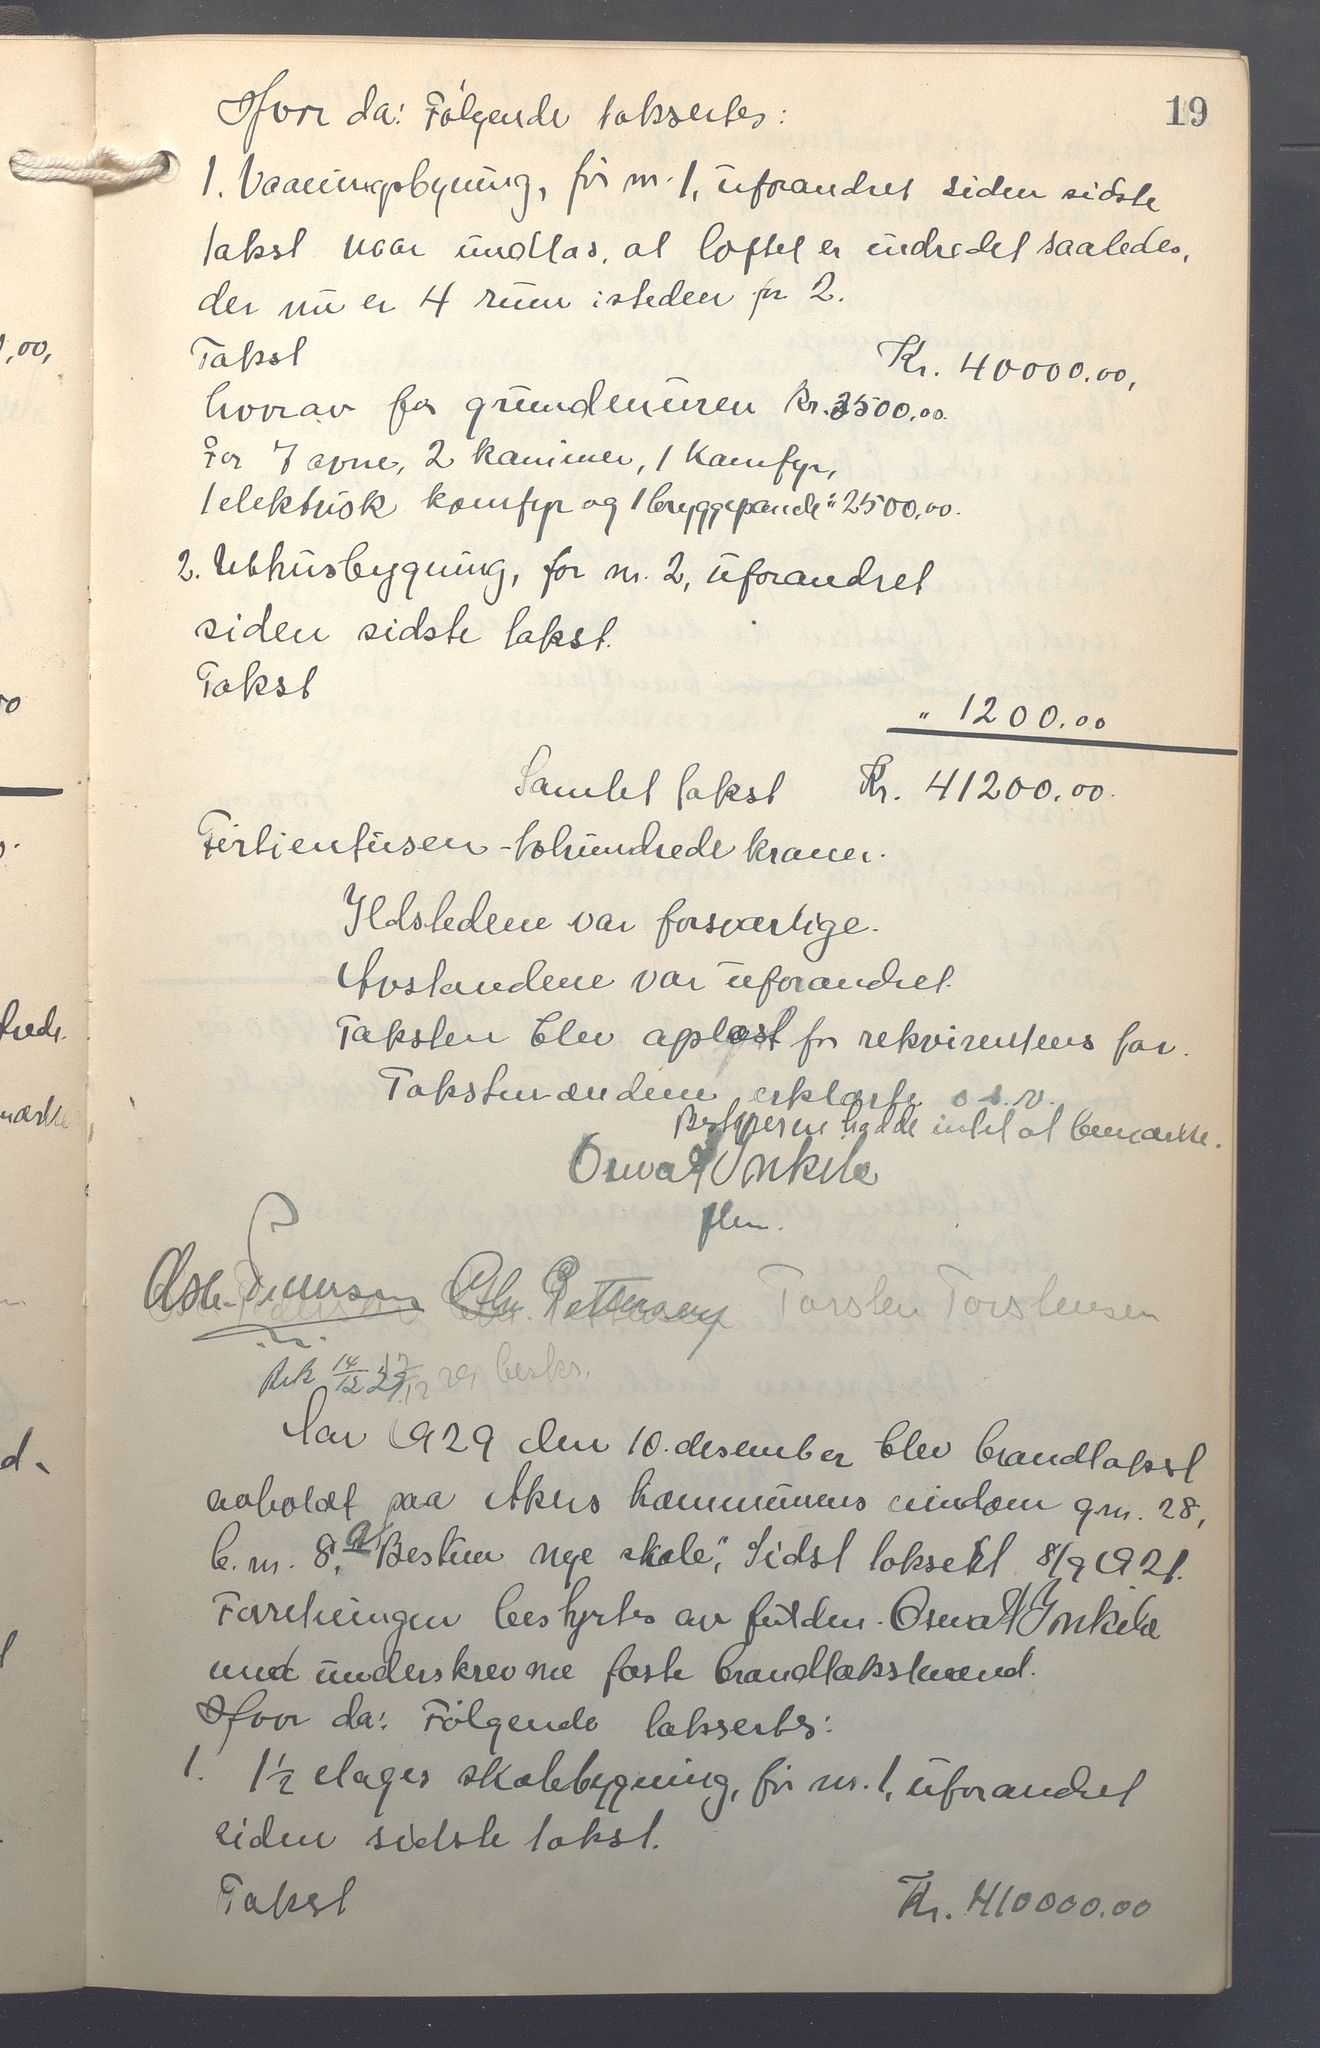 19
Hvor da: Følgende taksertes:
1. Vaaningsbygning, før nr. 1, uforandret siden sidste
takst naar undtas, at loftet er indredet saaledes,
der nu er 4 rum isteden for 2.
Takst Kr. 40000.00,
hvorav for grundmuren Kr. 3500,00.
For 7 ovne, 2 kaminer, 1 Komfyr,
1 elektrisk komfyr og 1 bryggepande " 2500,00.
2. Uthusbygning, før nr. 2, uforandret
siden sidste takst.
Takst
" 1200.00
Samlet takst Kr. 41200.00.
Førtientusen-tohundrede kroner.
Ildstedene var forsvarlige.
Avstandene var uforandret.
Taksten blev oplæst for rekvirentens for.
Takstmændene erklærte o.s.v.
Bestyreren hadde intet at bemærke.
Osvald Inkila
flm.
Chr. Pettersen Torsten Torstensen
Rek 14/12 27 beskr.
Aar 1929 den 10. desember blev brandtakst
avholdt paa Akers kommunens eiendom g.nr. 28,
b.nr. 8, "Bestum nye skole," Sidst taksert 8/9 1921.
Forretningen bestyrtes av fuldm. Osvald Inkila
med underskrevne faste brandtakstmænd.
Hvor da: Følgende taksertes:
1. 1½ etages skolebygning, før nr. 1, uforandret
siden sidste takst.
Takst Kr. 410000.00